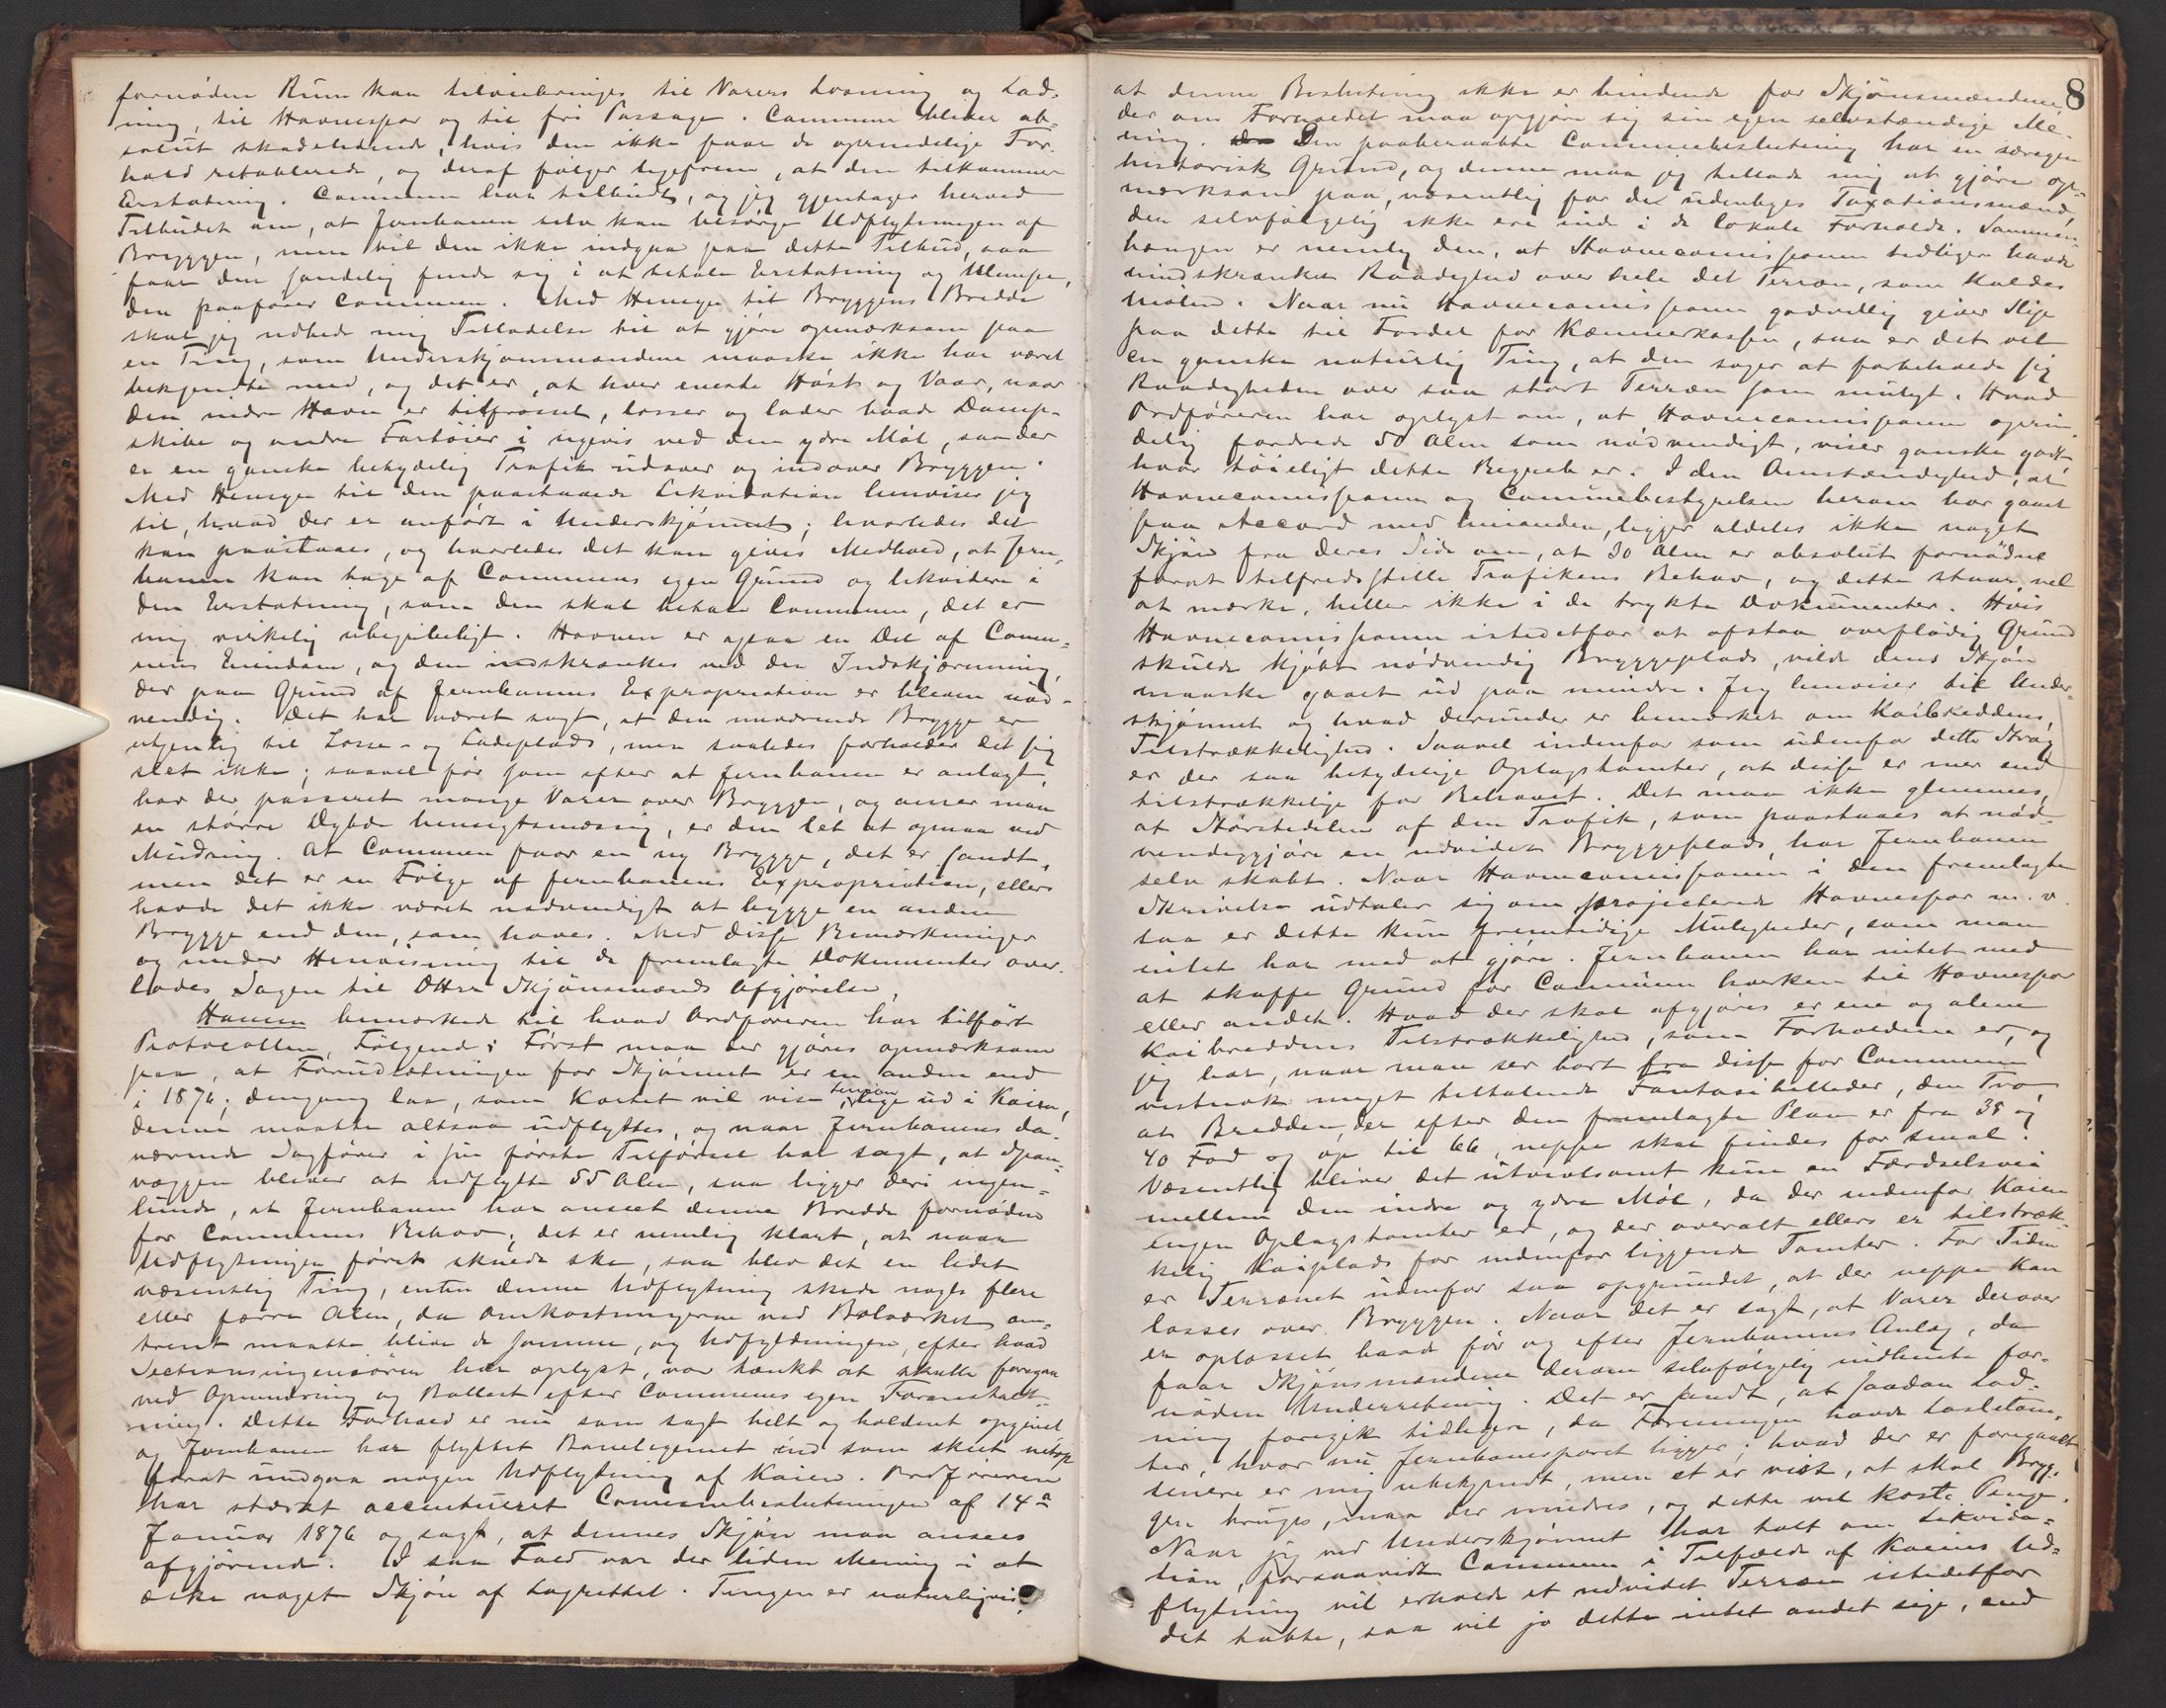 fornöden Rum kan tilveiebringes til Varers Losning og Lad-
ning, til Havnespor og til fri Passage. Communen bliver ab-
solut skadelidende, hvis den ikke faar de oprindelige For-
hold retablerede, og deraf følger ligefrem, at den tilkommer
Erstatning. Communen har tilbudt, og jeg gjentager herved
Tilbudet om, at Jernbanen selv kan besørge Udflytningen af
Bryggen, men vil den ikke indgaa paa dette Tilbud, saa
faar den sandelig finde sig i at betale Erstatning og Ulempe,
den paafører Communen. Med Hensyn til Bryggens Bredde
skal jeg udbede mig Tilladelse til at gjöre opmærksom paa
en Ting, som Underskjönsmændene maaske ikke har været
bekjendte med, og det er, at hver eneste Höst og Vaar, naar
den indre Havn er tilfrosset, losser og lader baade Damp-
skibe og andre Fartöier i ugevis ved den ydre Mól, saa der
er en ganske betydelig Trafik udover og indover Bryggen.
Med Hensyn til den paastaaede Likvidation henviser jeg
til, hvad der er anført i Underskjönnet; hvorledes det
kan paastaaes, og hvorledes det kan gives Medhold, at Jern-
banen kan tage af Communens egen Grund og likvidere i
den Erstatning, som den skal betale Communen, det er
mig virkelig ubegribeligt. Havnen er ogsaa en Del af Commu-
nens Eiendom, og den indskrænkes ved den Indskjærmning,
der paa Grund af Jernbanens Expropriation er bleven nöd-
vendig. Det har været sagt, at den nuværende Brygge er
utjenlig til Losse- og Ladeplads, men saaledes forholder det sig
slet ikke; saavel för som efter at Jernbanen er anlagt,
har der passeret mange Varer over Bryggen, og anser man
en större Dybde hensigtsmæssig, er den let at opnaa ved
Mudring. At Communen faar en ny Brygge, det er sandt,
men det er en Følge af Jernbanens Expropriation, ellers
havde det ikke været nødvendigt at bygge en anden
Brygge end den, som haves. Med disse Bemærkninger
og under Henvisning til de fremlagte Dokumenter over-
lades Sagen til Dhrr Skjönsmænds Afgjörelse.
Hansen bemærkede til hvad Ordföreren har tilfört
Protocollen, Følgende: Först maa der gjöres opmærksom
paa, at Forudsætningen for Skjönnet er en anden end
i 1876; dengang laa, som Kartet vil vise, Linien lige ud i Kaien,
denne maatte altsaa udflyttes, og naar Jernbanens da-
værende Sagfører i sin første Tilførsel har sagt, at Spun-
væggen bliver at udflytte 55 Alen, saa ligger deri ingen-
lunde, at Jernbanen har anseet denne Bredde fornöden
for Communens Behov; det er nemlig klart, at naar
Udflytningen først skulde ske, saa blev det en lidet
væsentlig Ting, enten denne Udflytning skede nogle flere
eller færre Alen, da Omkostningerne ved Bolværket om-
trent maatte blive de samme, og Udfyldningen, efter hvad
Sectionsingeniören har oplyst, var tænkt at skulle foregaa
ved Opmudring og Ballast efter Communens egen Foranstalt-
ning. Dette Forhold er nu som sagt helt og holdent opgivet
og Jernbanen har flyttet Banelegemet ind som skeet netop
forat undgaa nogen Udflytning af Kaien. Ordföreren
har stærkt accentueret Communebeslutningen af 14de
Januar 1876 og sagt, at dennes Skjön maa ansees
afgjörende. I saa Fald var der liden Mening i at
æske noget Skjön af Lagrettet. Tingen er naturligvis,
8
at denne Beslutning ikke er bindende for Skjönsmændene,
der om Forholdet maa opgjöre sig sin egen selvstændige Me-
ning. Den paaberaabte Communebeslutning har en særegen
historisk Grund, og denne maa jeg tillade mig at gjöre op-
mærksom paa, væsentlig for de udenbyes Taxationsmænd,
der selvfølgelig ikke ere inde i de lokale Forholde. Sammen-
hængen er nemlig den, at Havnecommissionen tidligere havde
uindskrænket Raadighed over hele det Terræn, som kaldes
Mólen. Naar nu Havnecommissionen godvillig giver Slip
paa dette til Fordel for Kæmnerkassen, saa er det vel
en ganske naturlig Ting, at den søger at forbeholde sig
Raadigheden over saa stort Terræn som muligt. Hvad
Ordföreren har oplyst om, at Havnecommissionen oprin-
delig fordrede 50 Alen som nödvendigt, viser ganske godt,
hvor töieligt dette Begreb er. I den Omstændighed, at
Havnecommissionen og Communebestyrelsen herom har gaaet
paa Accord med hinanden, ligger aldeles ikke noget
Skjön fra deres Side om, at 30 Alen er absolut fornødne
forat tilfredsstille Trafikens Behov, og dette staar vel
at mærke, heller ikke i de trykte Dokumenter. Hvis
Havnecommissionen istedetfor at afstaa overflødig Grund
skulde kjöbt nødvendig Bryggeplads, vilde dens Skjön
maaske gaaet ud paa mindre. Jeg henviser til Under-
skjönnet og hvad derunder er bemærket om Kaibreddens
Tilstrækkelighed. Saavel indenfor som udenfor dette Strøg
er der saa betydelige Oplagstomter, at disse er mer end
tilstrækkelige for Behovet. Det maa ikke glemmes,
at Størstedelen af den Trafik, som paastaaes at nød-
vendiggjöre en udvidet Bryggeplads, har Jernbanen
selv skabt. Naar Havnecommissionen i den fremlagte
Skrivelse udtaler sig om projecterede Havnespor m.v.
saa er dette kun fremtidige Muligheder, som man
intet har med at gjöre. Jernbanen har intet med
at skaffe Grund for Communen hverken til Havnespor
eller andet. Hvad der skal afgjöres er ene og alene
Kaibreddens Tilstrækkelighed, som Forholdene er, og
jeg har, naar man ser bort fra disse for Communen
vistnok meget tiltalende Fantasibilleder, den Tro
at Bredden, der efter den fremlagte Plan er fra 38 og
40 Fod og op til 66, neppe skal findes for smal.
Væsentlig bliver det utvivlsomt kun en Færdselsvei
mellem den indre og ydre Mól, da der indenfor Kaien
ingen Oplagstomter er, og der overalt ellers er tilstræk-
kelig Kaiplads for indenfor liggende Tomter. For Tiden
er Terrænet udenfor saa opgrundet, at der neppe kan
losses over Bryggen. Naar det er sagt, at Varer derover
er oplosset baade för og efter Jernbanens Anlæg, da
faar Skjönsmændene derom selvfølgelig indhente for-
nöden Underretning. Det er sandt, at saadan Lad-
ning foregik tidligere, da Foreningen havde Lastetom-
ter, hvor nu Jernbanesporet ligger; hvad der er foregaaet
senere er mig ubekjendt, men et er vist, at skal Bryg-
gen bruges, maa der mudres, og dette vil koste Penge.
Naar jeg ved Underskjönnet har talt om Likvida-
tion, forsaavidt Communen i Tilfælde af Kaiens Ud-
flytning vil erholde et udvidet Terræn istedetfor
det tabte, saa vil jo dette intet andet sige, end